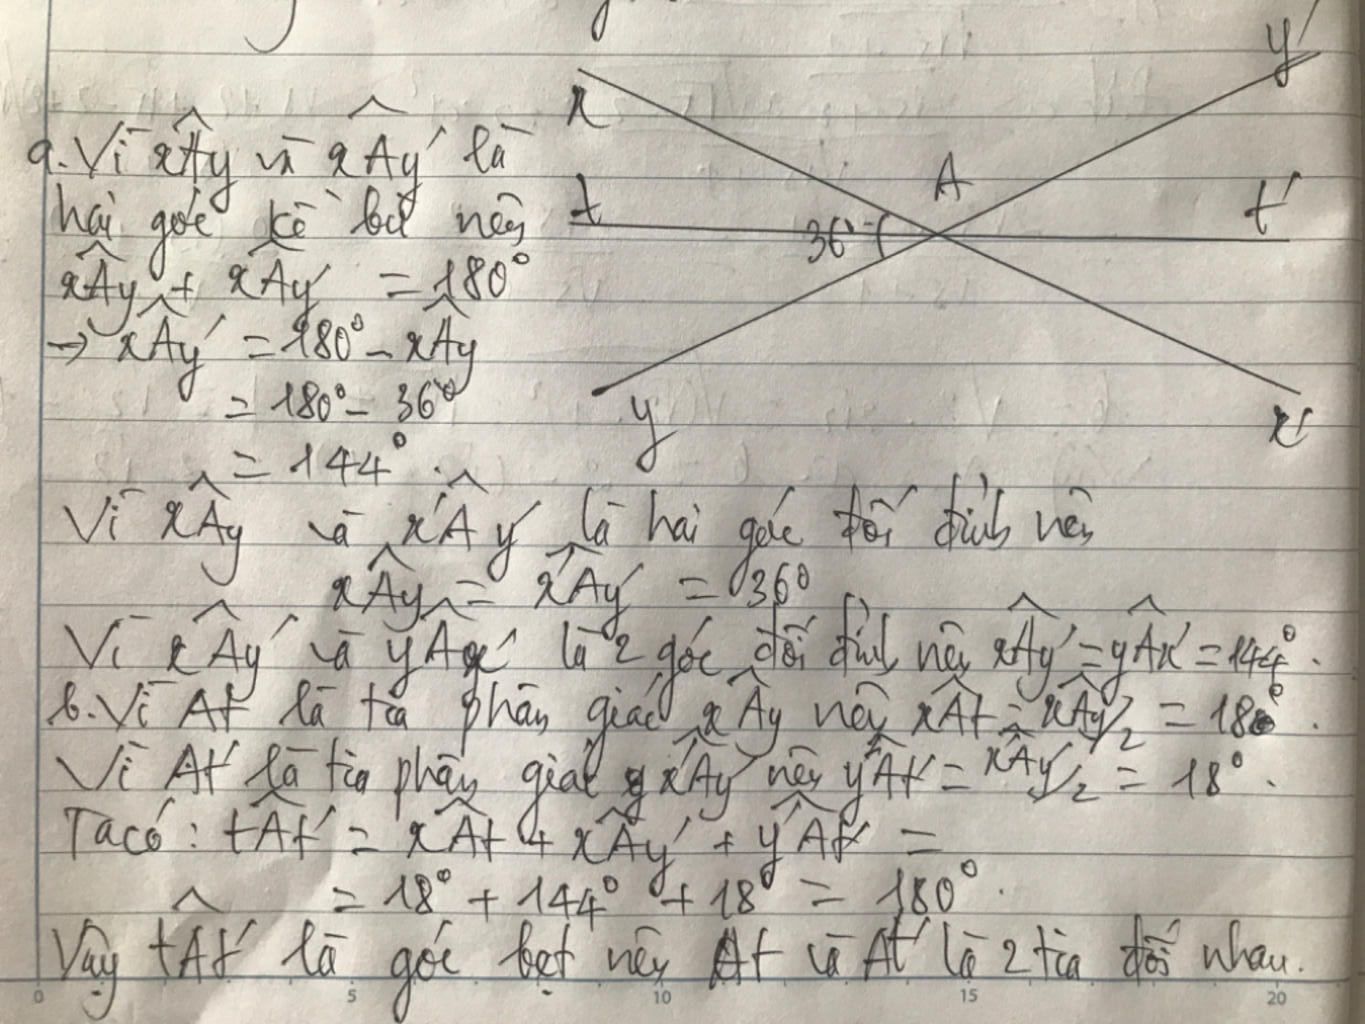 x
y'
A
t
t'
36°
y
x'
a. Vì xÂy và xÂy' là
hai góc kề bù nên
xÂy + xÂy' = 180°
→ xÂy' = 180° - xÂy
= 180° - 36°
= 144°.
Vì xÂy và x'Ây' là hai góc đối đỉnh nên
xÂy = x'Ây' = 36°
Vì xÂy' và yÂx' là 2 góc đối đỉnh nên xÂy' = yÂx' = 144°.
b. Vì At là tia phân giác xÂy nên xÂt = xÂy/2 = 18°.
Vì At' là tia phân giác x'Ây' nên y'Ât' = x'Ây'/2 = 18°.
Ta có: tÂt' = xÂt + xÂy' + y'Ât' =
= 18° + 144° + 18° = 180°.
Vậy tÂt' là góc bẹt nên At và At' là 2 tia đối nhau.
0 5 10 15 20